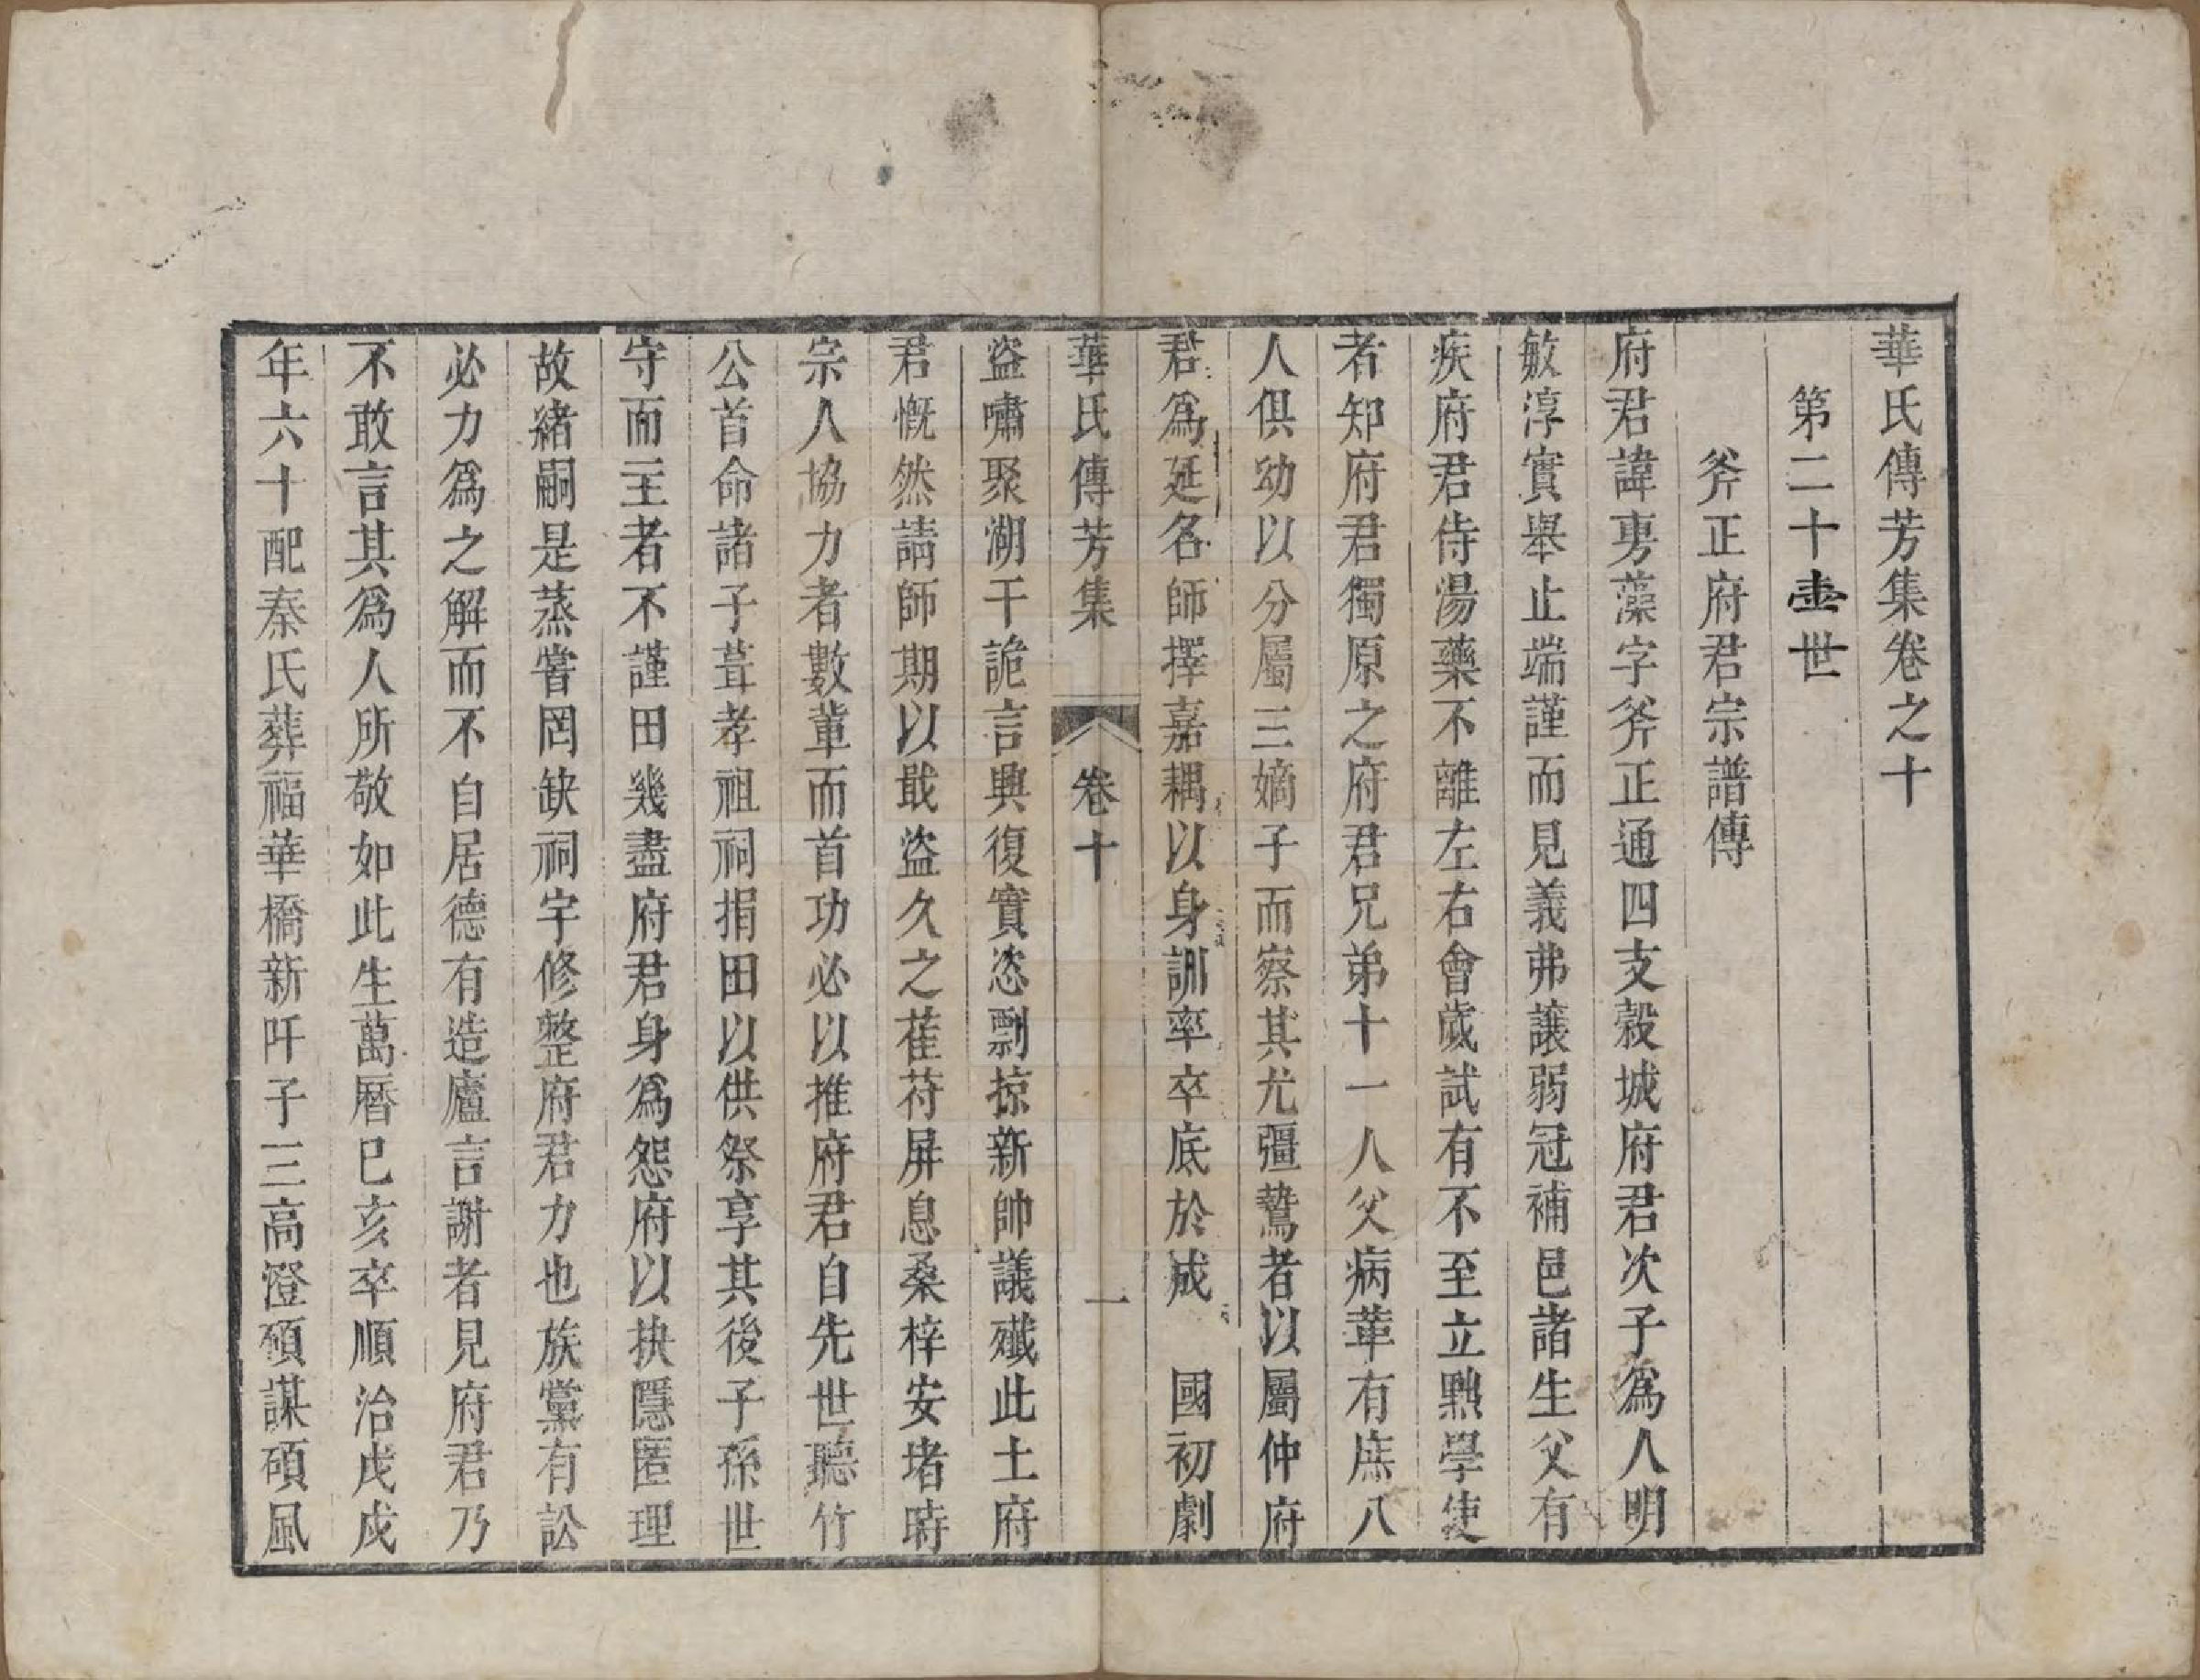 華氏傳芳集卷之十
第二十壹世
斧正府君宗譜傳
府君諱叀藻字斧正通四支穀城府君次子爲人明
敏淳實舉止端謹而見義弗讓弱冠補邑諸生父有
疾府君侍湯藥不離左右會歲試有不至立黜學使
者知府君獨原之府君兄弟十一人父病革有庶八
人俱幼以分屬三嫡子而察其尤彊鷙者以屬仲府
君爲延名師擇嘉耦以身訓率卒底於成　國初劇
華氏傳芳集　卷十　一
盜嘯聚湖干詭言興復實恣剽掠新帥議殲此土府
君慨然請師期以戢盜久之萑苻屏息桑梓安堵時
宗人協力者數輩而首功必以推府君自先世聽竹
公首命諸子葺孝祖祠捐田以供祭享其後子孫世
守而主者不謹田幾盡府君身爲怨府以抉隱匿理
故緒嗣是蒸嘗罔缺祠宇修整府君力也族黨有訟
必力爲之解而不自居德有造廬言謝者見府君乃
不敢言其爲人所敬如此生萬曆己亥卒順治戊戌
年六十配秦氏葬福華橋新阡子三高澄碩謀碩風